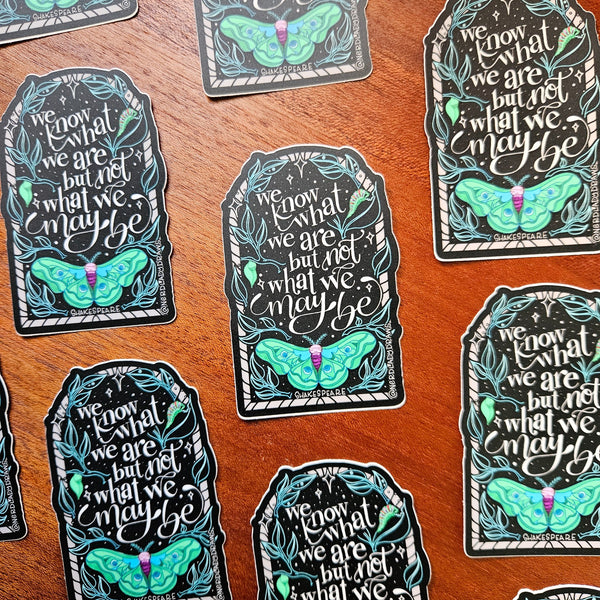 may be
SHAKESPEARE
@NERDLADYDRAWS
we
know
what
we are
but not
what we
may be
SHAKESPEARE
@NERDLADYDRAWS
we
know
what
we are
but not
what we
may be
SHAKESPEARE
@NERDLADYDRAWS
we
know
what
we are
but not
what we
may be
SHAKESPEARE
@NERDLADYDRAWS
we
know
what
we are
but not
what we
may be
SHAKESPEARE
@NERDLADYDRAWS
we
know
what
we are
but not
what we
may be
SHAKESPEARE
@NERDLADYDRAWS
we
know
what
we are
but not
what we
may be